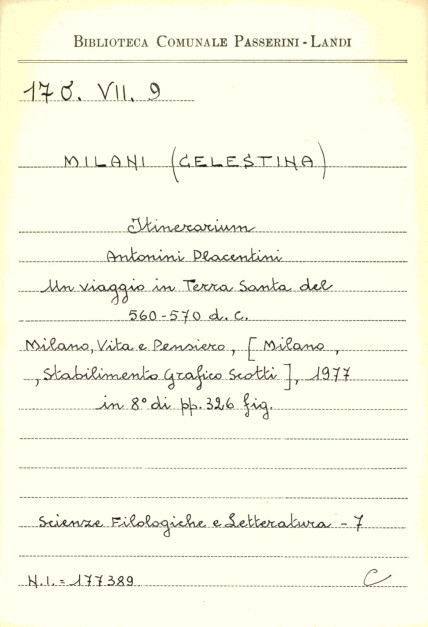 BIBLIOTECA COMUNALE PASSERINI - LANDI
17 O. VII. 9
MILANI (CELESTINA)
Itinerarium
Antonini Placentini
Un viaggio in Terra Santa del
560-570 d. C.
Milano, Vita e Pensiero, [Milano,
, Stabilimento Grafico Scotti], 1977
in 8° di pp. 326 fig.
Scienze Filologiche e Letteratura - 7
N.I. = 177389 C